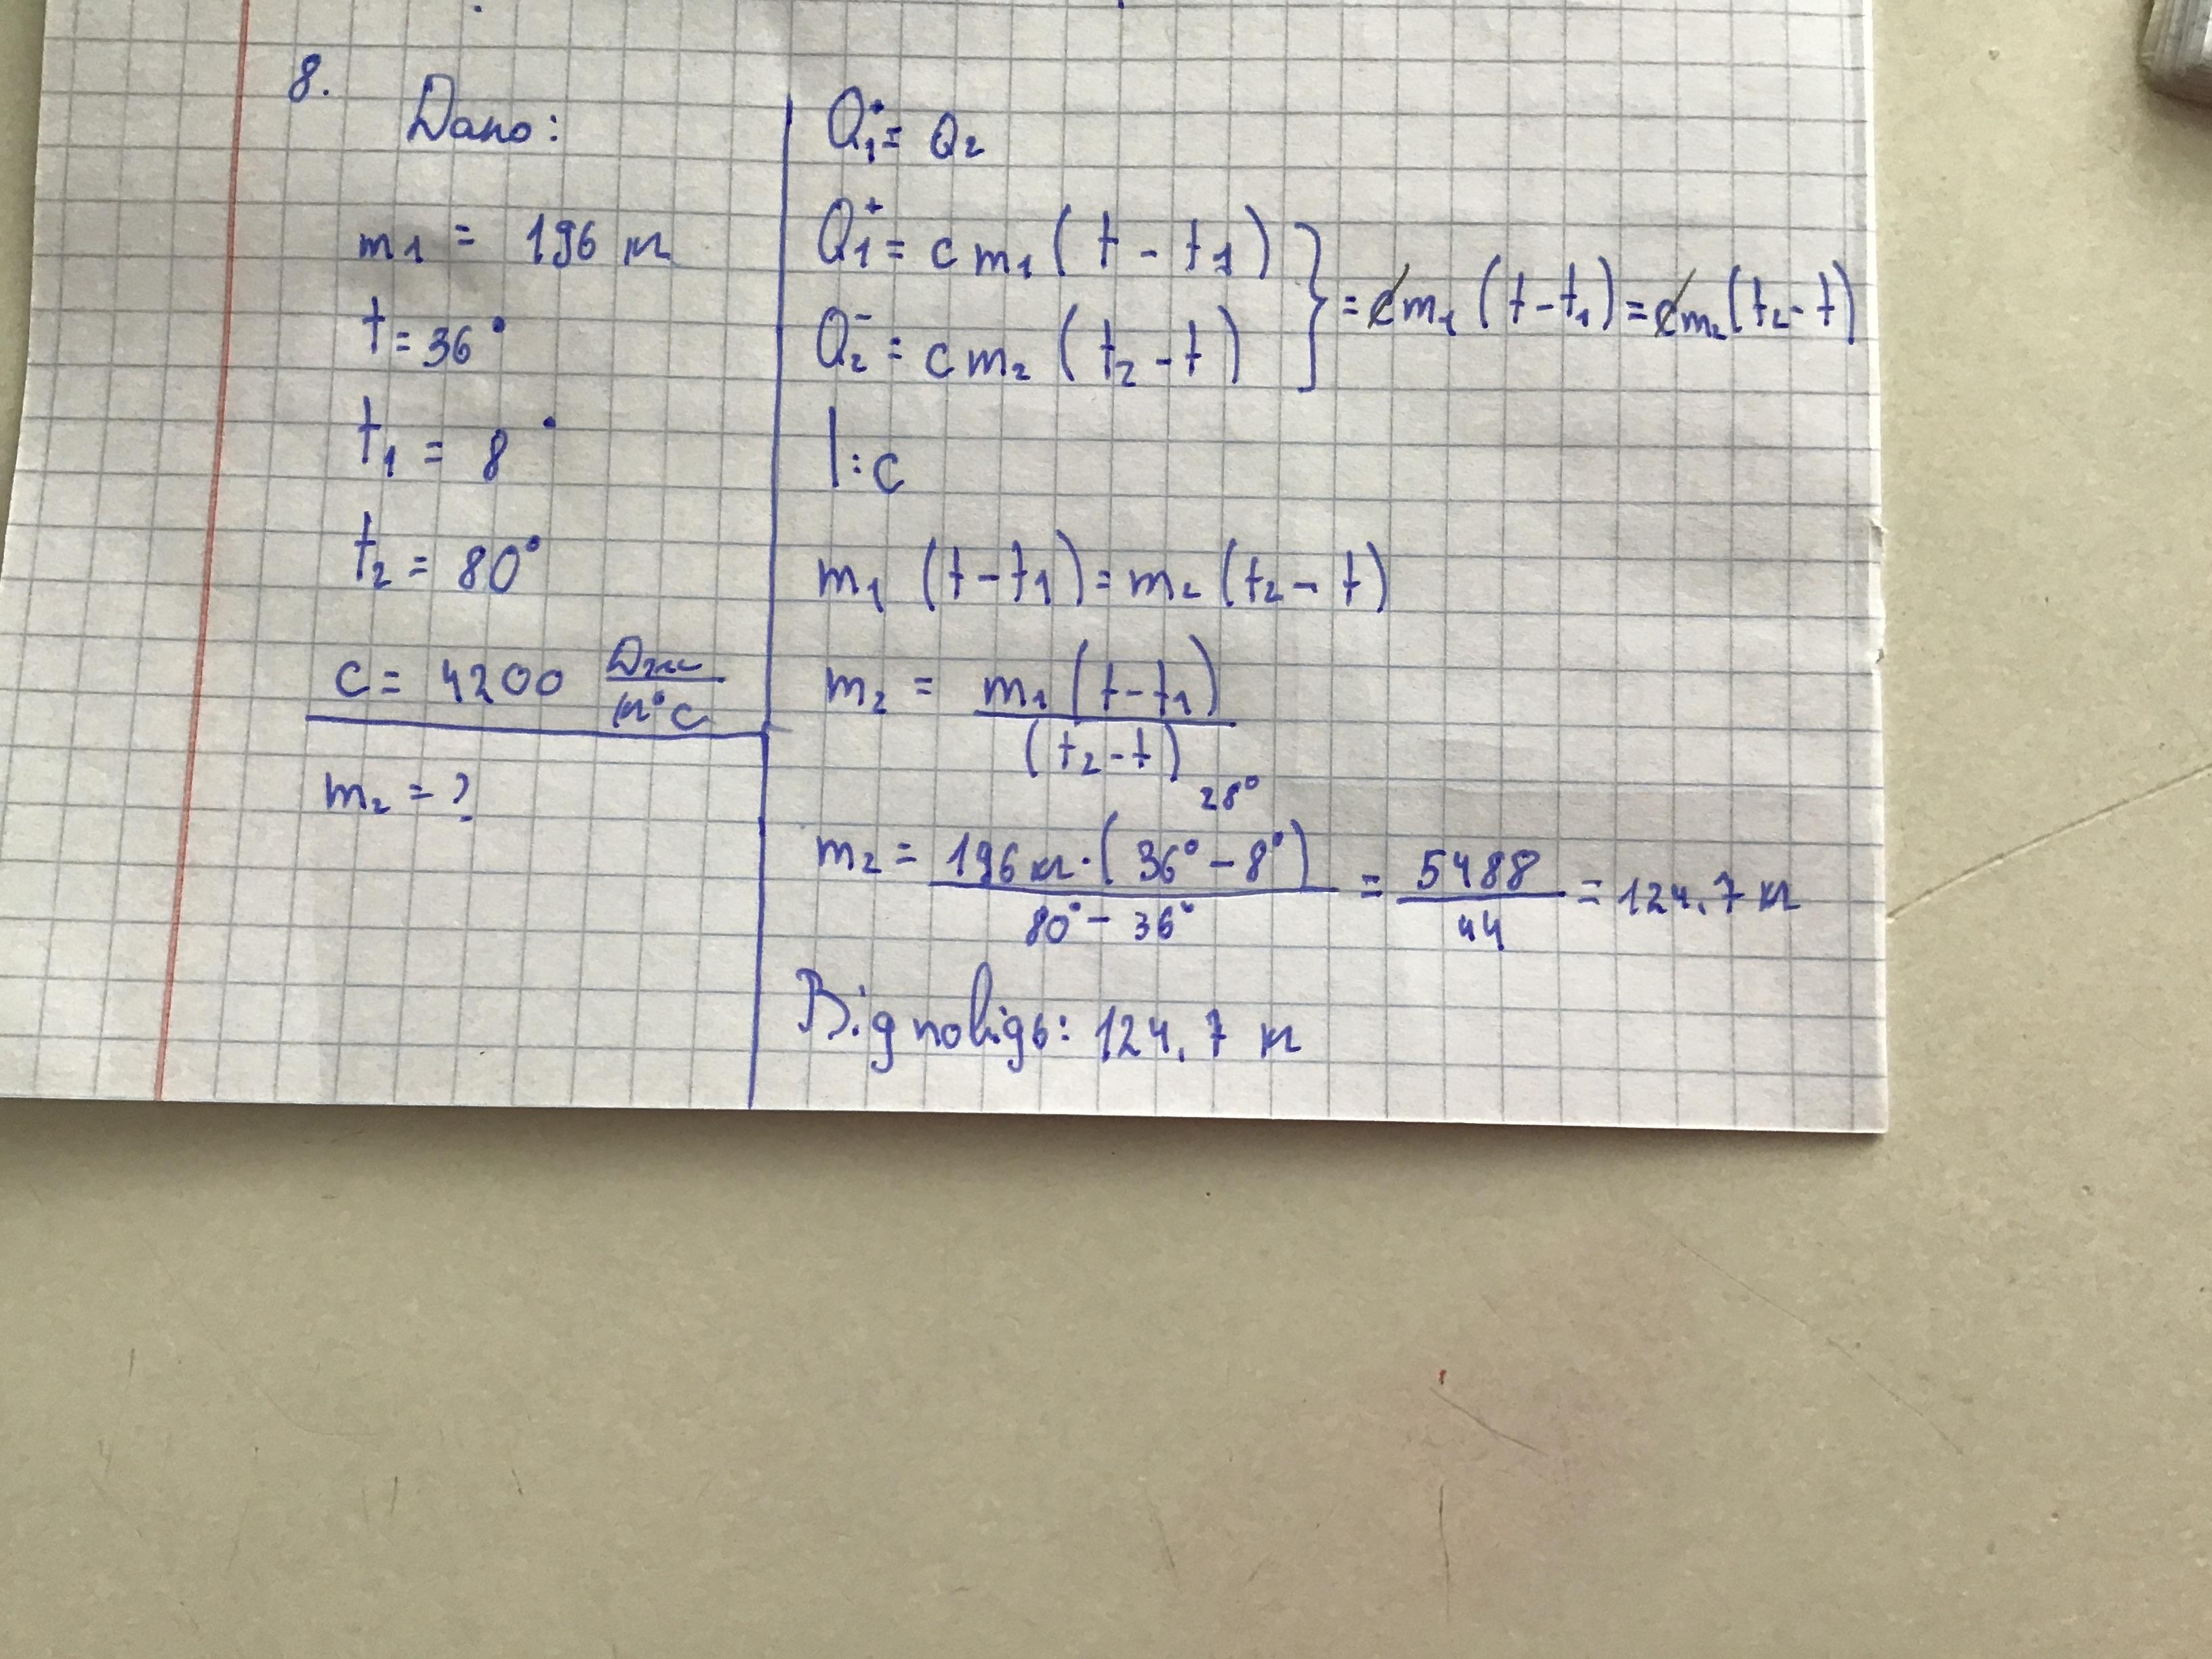 8.
Дано:
m₁ = 196 кг
t = 36°
t₁ = 8°
t₂ = 80°
c = 4200 Дж/кг°C
m₂ = ?
Q₁⁺ = Q₂
Q₁⁺ = c m₁ (t - t₁)
Q₂⁻ = c m₂ (t₂ - t)
} = c m₁ (t - t₁) = c m₂ (t₂ - t)
| : c
m₁ (t - t₁) = m₂ (t₂ - t)
m₂ = m₁ (t - t₁) / (t₂ - t)
28°
m₂ = 196 кг · (36° - 8°) / 80° - 36° = 5488 / 44 = 124.7 кг
Відповідь: 124.7 кг